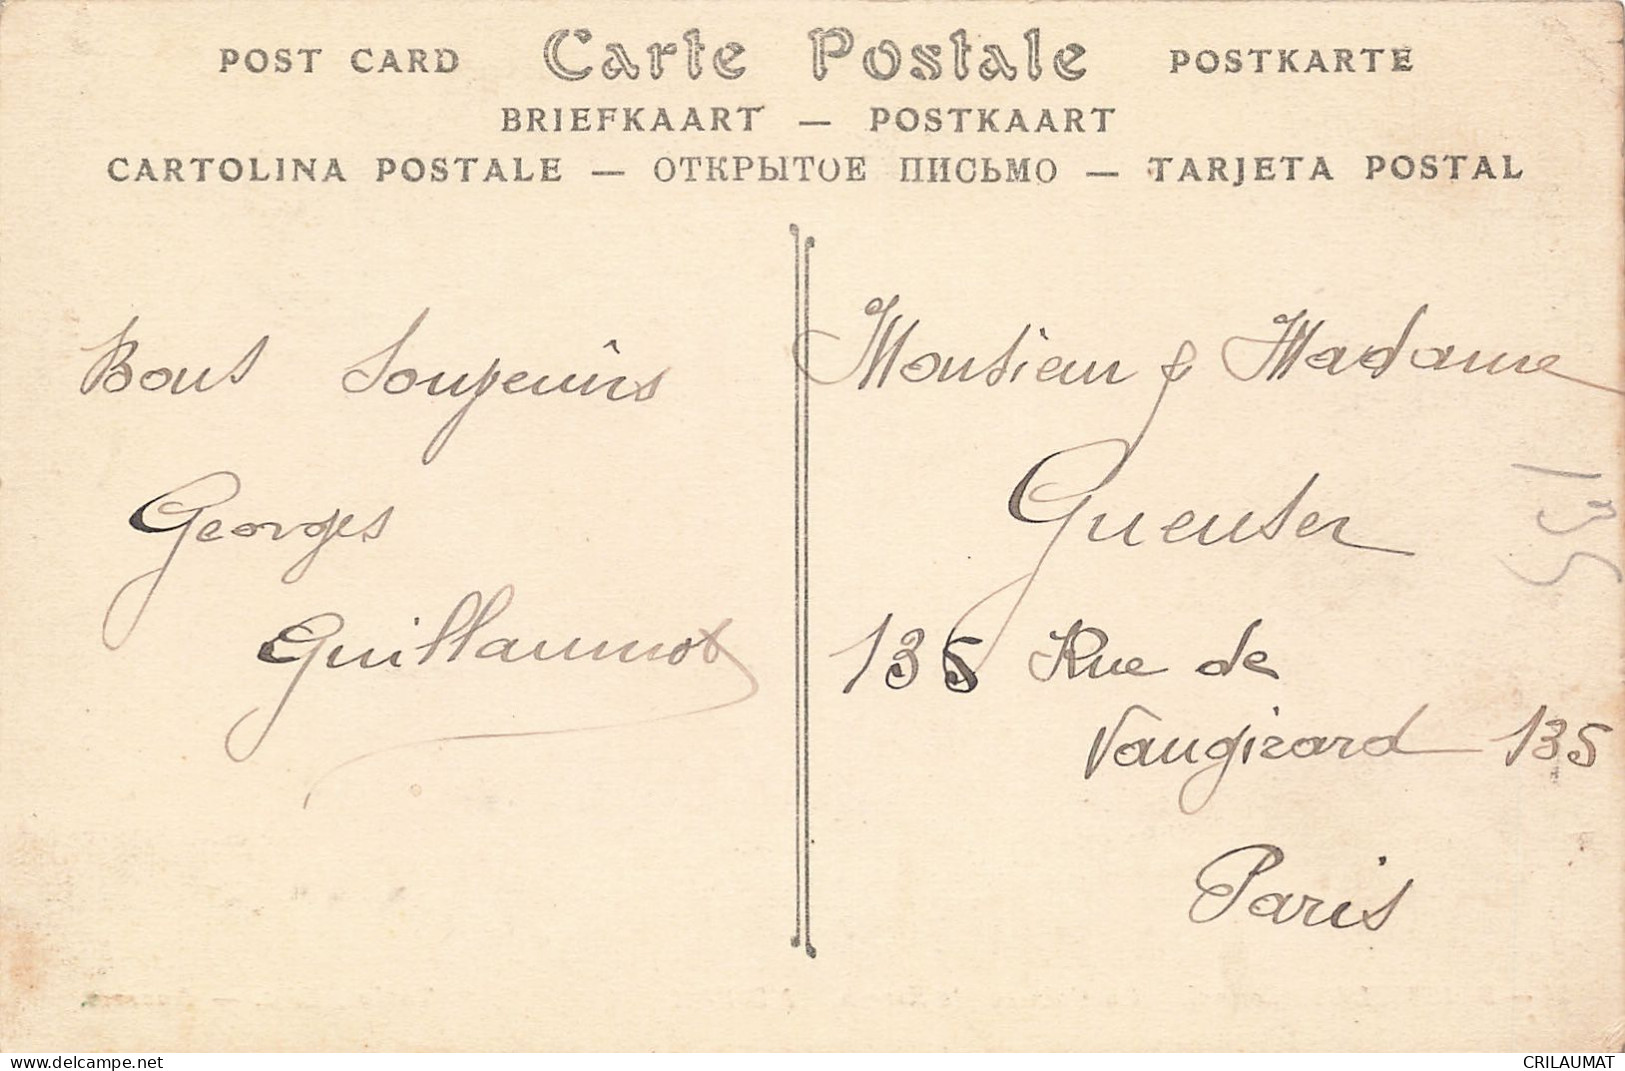 POST CARD Carte Postale POSTKARTE
BRIEFKAART — POSTKAART
CARTOLINA POSTALE — ОТКРЫТОЕ ПИСЬМО — TARJETA POSTAL
Bons Souvenirs
Georges
Guillaumot
Monsieur & Madame
Gueuser
135 Rue de
Vaugirard 135
Paris
135
www.delcampe.net
CRILAUMAT